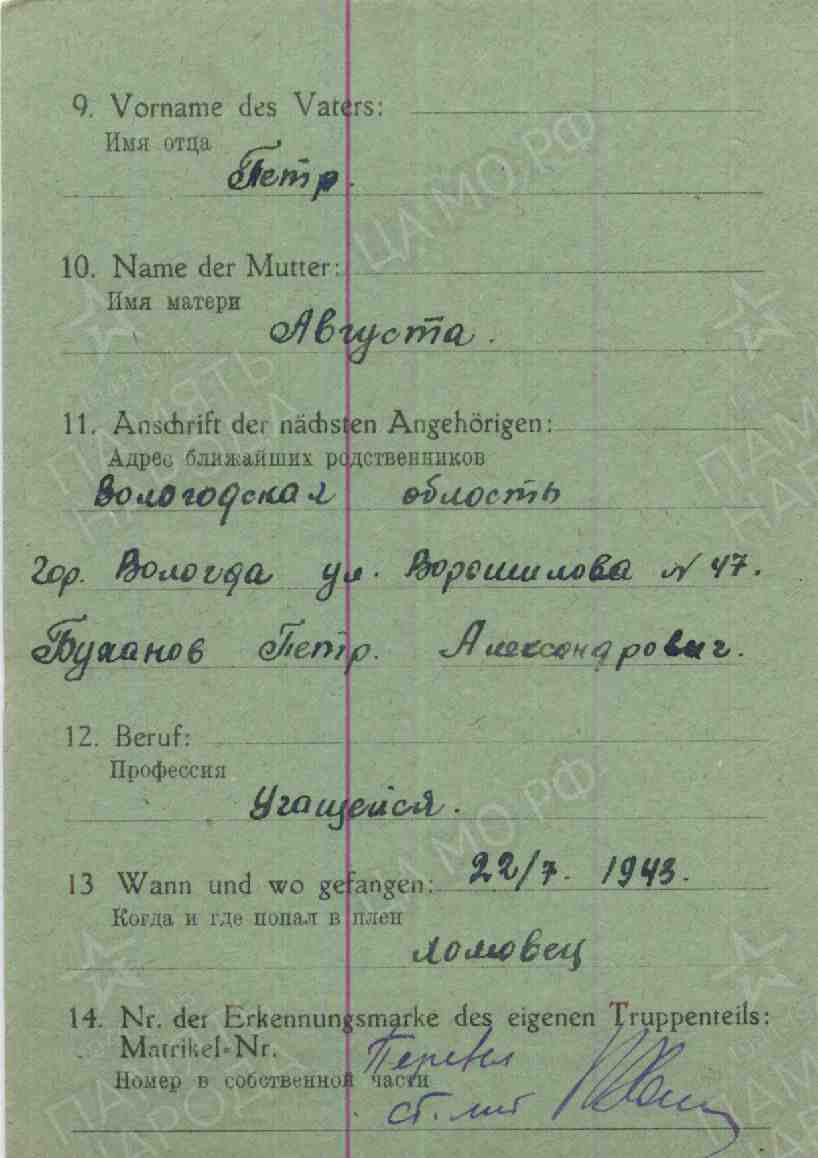 9. Vorname des Vaters:
Имя отца
Петр.
10. Name der Mutter:
Имя матери
Августа.
11. Anschrift der nächsten Angehörigen:
Адрес ближайших родственников
Вологодская область
гор. Вологда ул. Ворошилова № 47.
Буханов Петр. Александрович.
12. Beruf:
Профессия
Учащейся.
13 Wann und wo gefangen: 22/7. 1943.
Когда и где попал в плен
Ломовец
14. Nr. der Erkennungsmarke des eigenen Truppenteils:
Matrikel-Nr. Перевел
Номер в собственной части
ст. лит
ЦА МО.РФ
ПАМЯТЬ
НАРОДА
ЦА МО.РФ
ПАМЯТЬ
НАРОДА